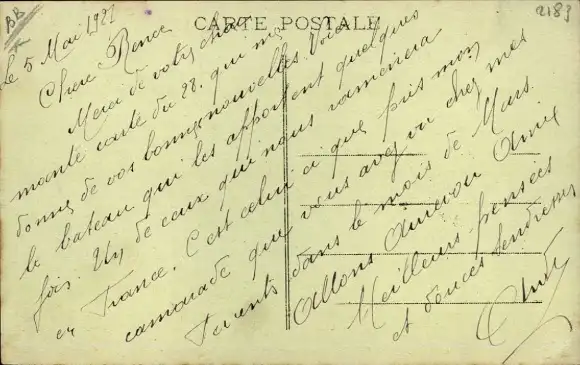 BB
2183
CARTE POSTALE
le 5 Mai 1921
Chere Renee
Merci de votre char
mante carte du 28. qui me
donne de vos bonnes nouvelles Voici
le bateau qui les apportent quelques
fois. Un de ceux qui nous ramenera
en France. C'est celui-ci que pris mon
camarade que vous avez vu chez mes
Parents dans le mois de Mars.
Allons Amie
Meilleurs pensées
et douces tendresses